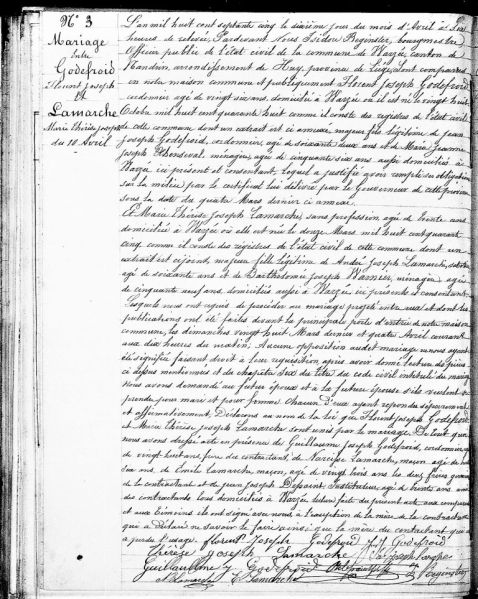 N° 3
Mariage
entre
Godefroid
Florent Joseph
et
Lamarche
Marie Thérèse Joseph
du 10 Avril
L'an mil huit cent septante cinq le dixième jour du mois d'Avril à
heures de relevée, Pardevant Nous Isidore bourgmestre
Officier public de l'état civil de la commune de Warzée, canton de
Nandrin, arrondissement de Huy, province de Liège, sont comparus
en notre maison commune et publiquement Florent Joseph Godefroid,
cordonnier âgé de vingt six ans, domicilié à Warzée où il est né le vingt huit
Octobre mil huit cent quarante huit comme il conste des registres de l'état civil
de cette commune dont un extrait est ci annexé, majeur fils légitime de Jean
Joseph Godefroid, cordonnier, âgé de soixante deux ans et de Marie Jeanne
Joseph ménagère, âgée de cinquante six ans aussi domiciliés à
Warzée ici présent et consentant, lequel a justifié avoir rempli ses obligations
sur la milice par le certificat lui délivré par le Gouverneur de cette province
sous la date du quatre Mars dernier ci annexé.
Et Marie Thérèse Joseph Lamarche, sans profession, âgée de trente ans
domiciliée à Warzée où elle est née le douze Mars mil huit cent quarante
cinq comme il conste des registres de l'état civil de cette commune dont un
extrait est ci joint, majeure fille légitime de André Joseph Lamarche,
âgé de soixante ans et de Barthélémie Joseph Warnier, ménagère, âgée
de cinquante neuf ans, domiciliés aussi à Warzée, ici présents et consentants.
Lesquels nous ont requis de procéder au mariage projeté entre eux et dont les
publications ont été faites devant la principale porte d'entrée de notre maison
commune, les dimanches vingt huit Mars dernier et quatre Avril courant
aux dix heures du matin; Aucune opposition audit mariage ne nous ayant
été signifiée faisant droit à leur réquisition, après avoir donné lecture des pièces
ci dessus mentionnées et du chapitre six du titre du code civil intitulé du mariage
Nous avons demandé au futur époux et à la future épouse s'ils veulent se
prendre pour mari et pour femme chacun d'eux ayant répondu séparément
et affirmativement, Déclarons au nom de la loi que Florent Joseph Godefroid
et Marie Thérèse Joseph Lamarche sont unis par le mariage. De tout quoi
nous avons dressé acte en présence de Guillaume Joseph Godefroid, cordonnier, âgé
de vingt huit ans, frère du contractant, de Narcisse Lamarche, maçon, âgé de
six ans, de Emile Lamarche, maçon, âgé de vingt trois ans, les deux frères
de la contractante et de Jean Joseph instituteur, âgé de trente ans
des contractants tous domiciliés à Warzée, lecture faite du présent acte aux comparants
et aux témoins ils ont signé avec nous, à l'exception de la mère de la contractante
qui a déclaré ne savoir le faire ainsi que la mère du contractant
l'usage. florent Joseph Godefroid J. J. Godefroid
Thérèse Joseph Lamarche
Guillaume J Godefroid
Lamarche E Lamarche